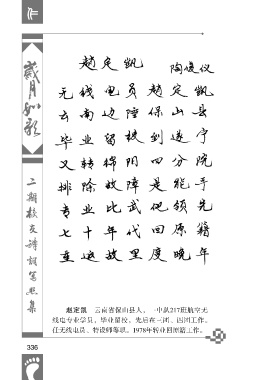 作
岁月如歌
二期校友诗词写照集
赵定凯
陶俊仪
无线电员赵定凯
云南边陲保山县
毕业留校到遂宁
又转绵阳四分院
排除故障是能手
专业比武他领先
七十年代回原籍
在这故里度晚年
赵定凯 云南省保山县人，一中队217班航空无
线电专业学员，毕业留校，先后在一河、四川工作，
任无线电员、特设师等职。1978年转业回原籍工作。
336